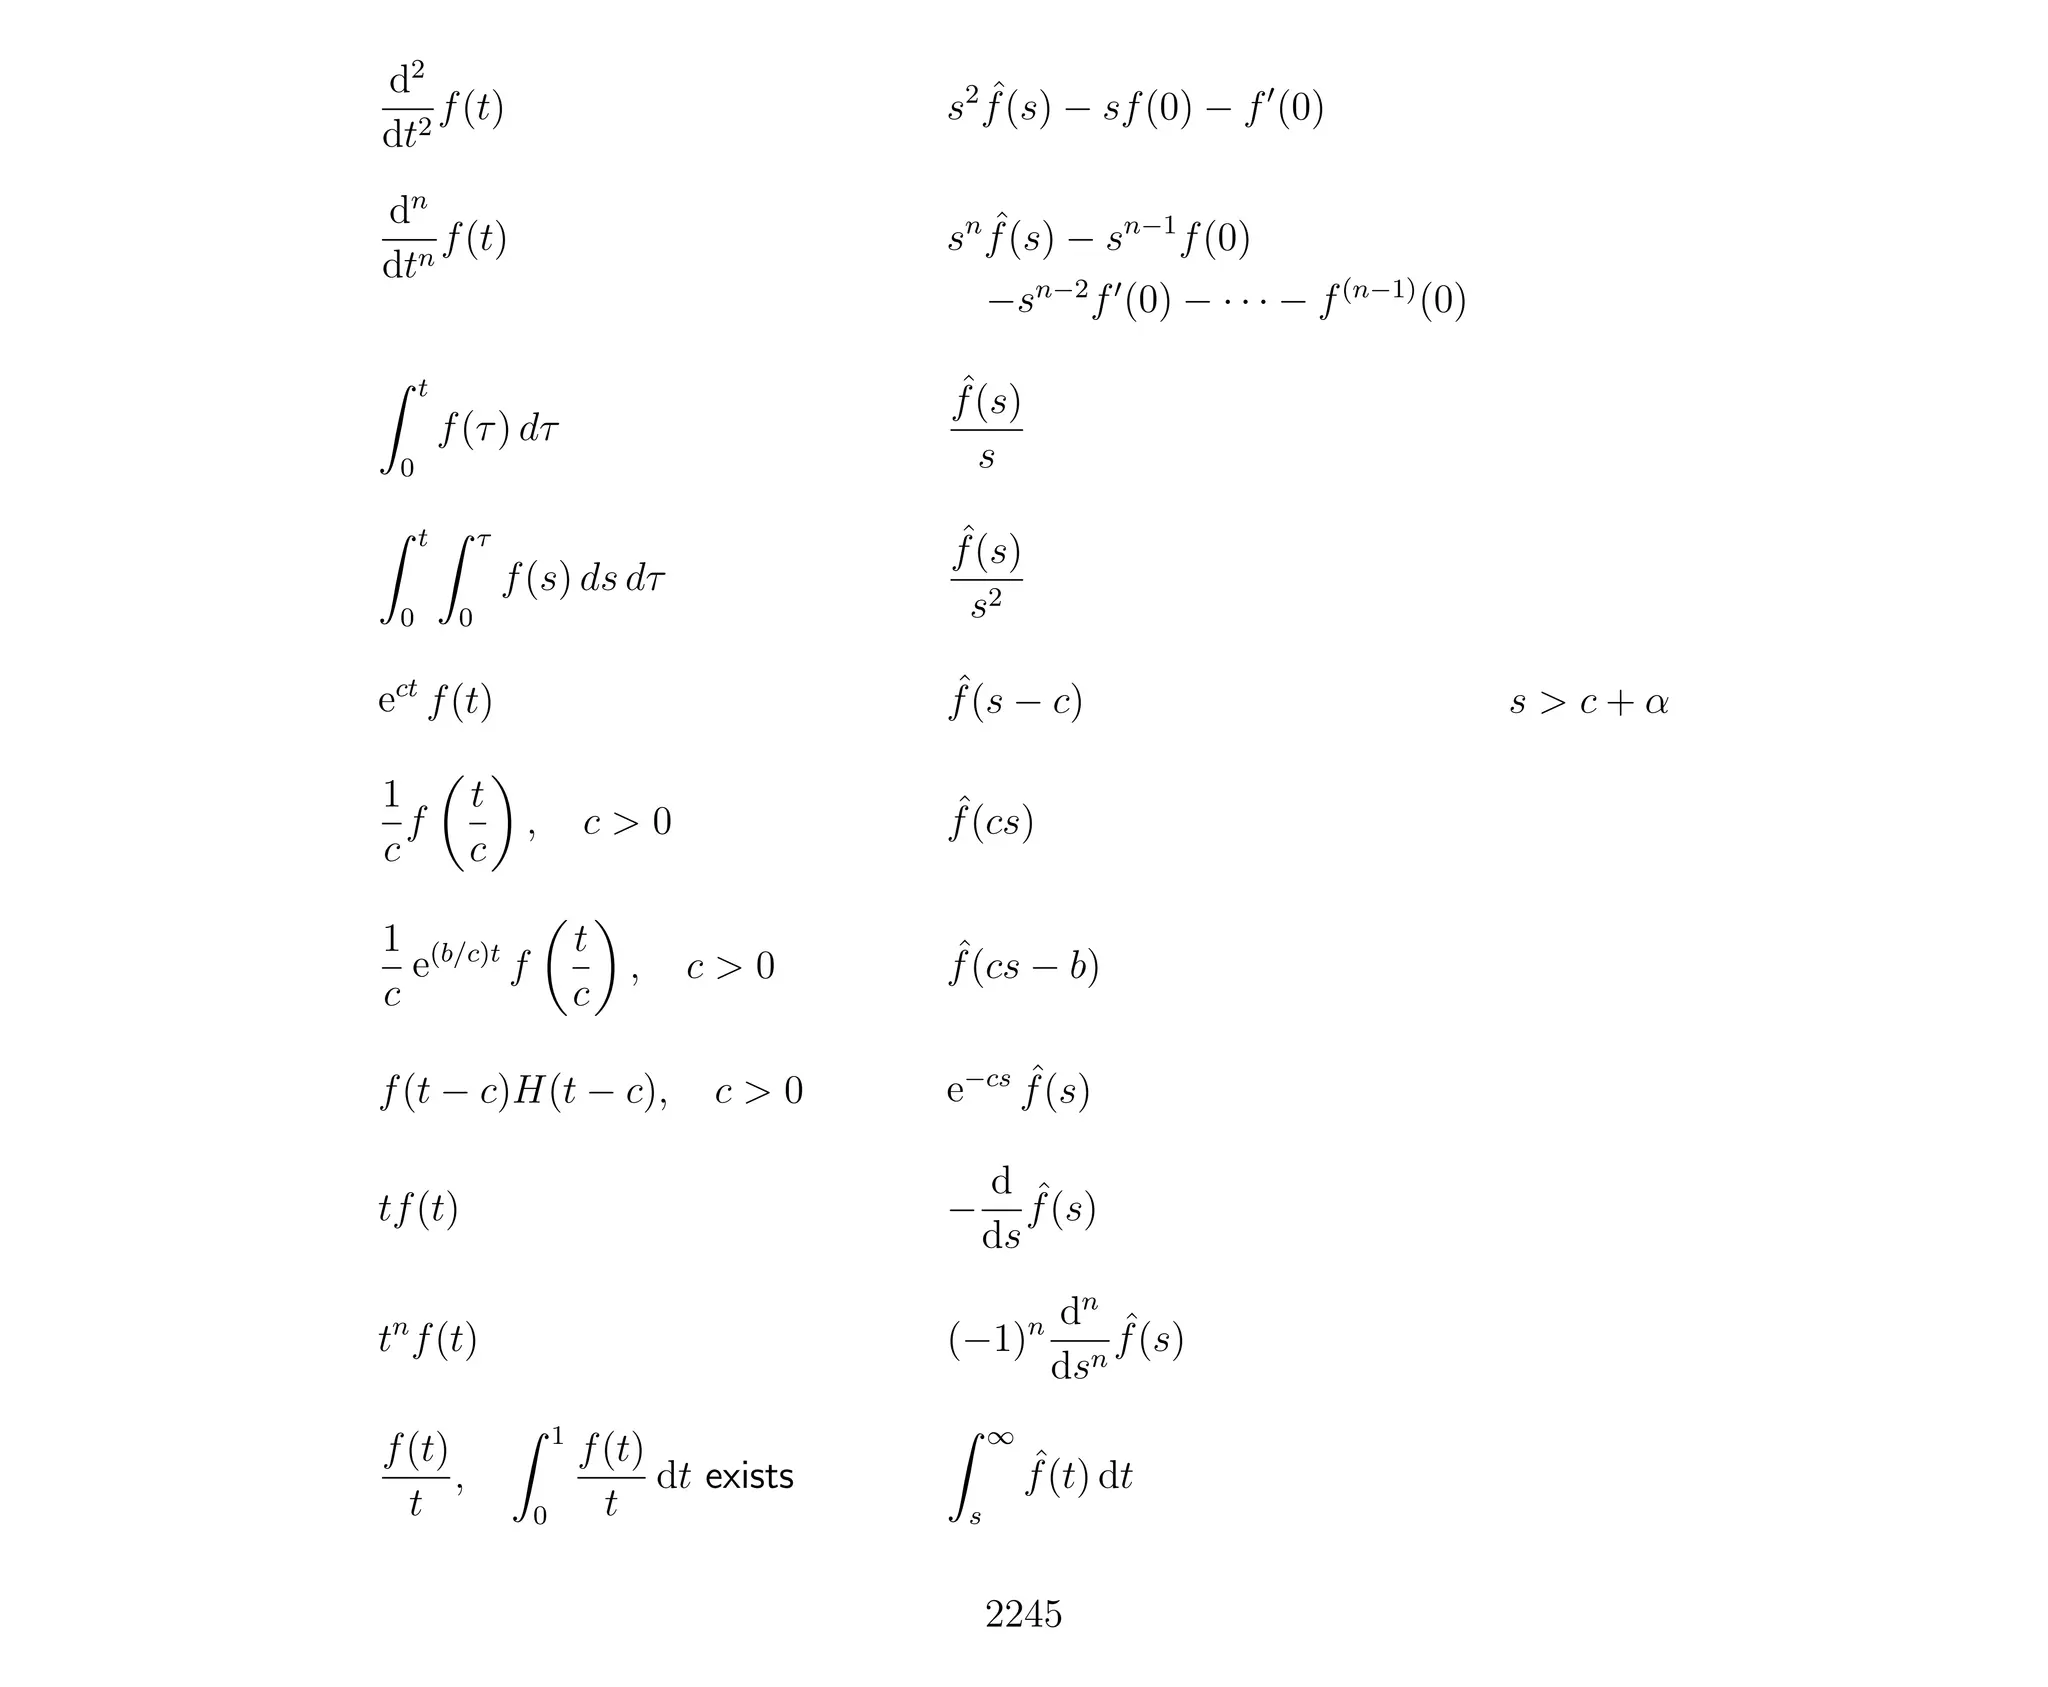 $\frac{\mathrm{d}^2}{\mathrm{d}t^2} f(t)$ $s^2 \hat{f}(s) - s f(0) - f'(0)$
$\frac{\mathrm{d}^n}{\mathrm{d}t^n} f(t)$ $s^n \hat{f}(s) - s^{n-1} f(0)$
$-s^{n-2} f'(0) - \cdots - f^{(n-1)}(0)$
$\int_0^t f(\tau)\, d\tau$ $\frac{\hat{f}(s)}{s}$
$\int_0^t \int_0^\tau f(s)\, ds\, d\tau$ $\frac{\hat{f}(s)}{s^2}$
$\mathrm{e}^{ct} f(t)$ $\hat{f}(s - c)$ $s > c + \alpha$
$\frac{1}{c} f\left(\frac{t}{c}\right), \quad c > 0$ $\hat{f}(cs)$
$\frac{1}{c} \mathrm{e}^{(b/c)t} f\left(\frac{t}{c}\right), \quad c > 0$ $\hat{f}(cs - b)$
$f(t - c) H(t - c), \quad c > 0$ $\mathrm{e}^{-cs} \hat{f}(s)$
$t f(t)$ $-\frac{\mathrm{d}}{\mathrm{d}s} \hat{f}(s)$
$t^n f(t)$ $(-1)^n \frac{\mathrm{d}^n}{\mathrm{d}s^n} \hat{f}(s)$
$\frac{f(t)}{t}, \quad \int_0^1 \frac{f(t)}{t}\, \mathrm{d}t$ exists $\int_s^\infty \hat{f}(t)\, \mathrm{d}t$
2245